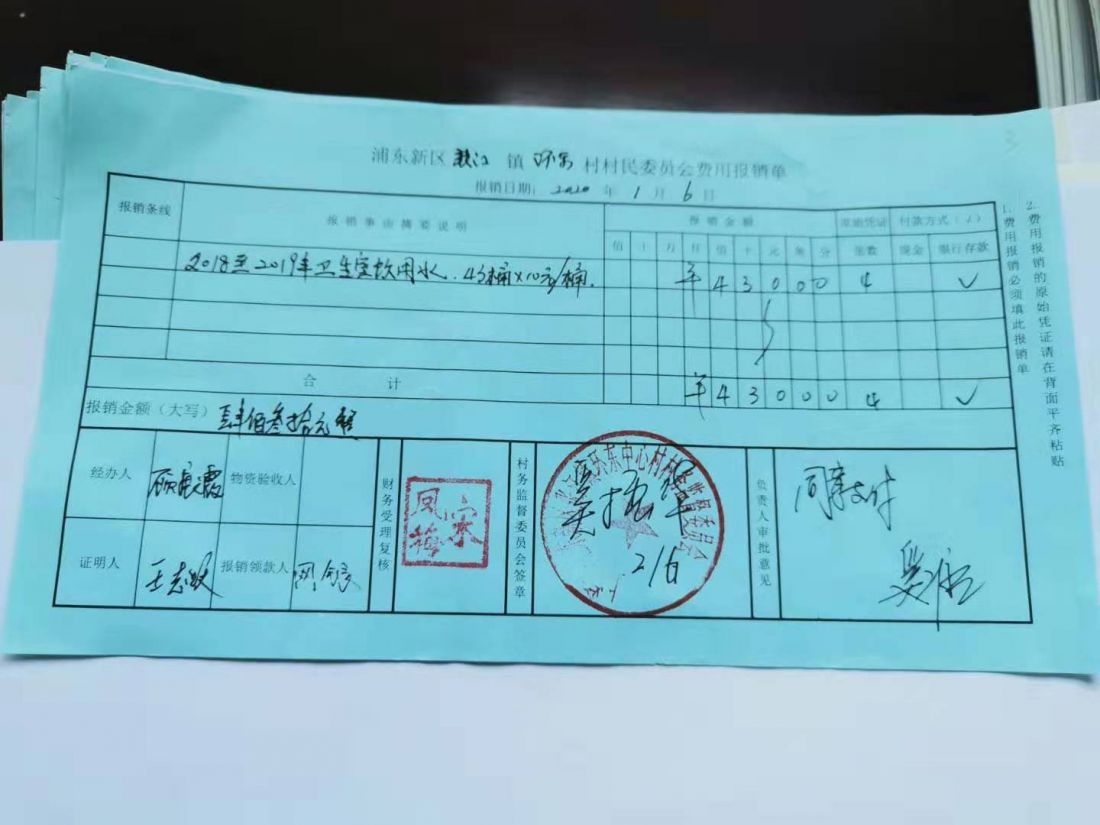 浦东新区 镇 村村民委员会费用报销单
报销日期: 2020 年 1 月 6 日
报销条线 报销事由摘要说明 报销金额 原始凭证 付款方式(√)
佰 十 万 仟 佰 十 元 角 分 张数 现金 银行存款
2018至2019年卫生室饮用水. 43桶×10元/桶. ¥ 4 3 0 0 0 4 √
合计 ¥ 4 3 0 0 0 4 √
报销金额(大写) 肆佰叁拾元整
经办人 物资验收人 财务受理复核 村务监督委员会签章 负责人审批意见 同意支付
证明人 王志 报销领款人
凤梅 宋
乐东中心村村务监督委员会
2/6
1. 费用报销必须填此报销单
2. 费用报销的原始凭证请在背面平齐粘贴
3